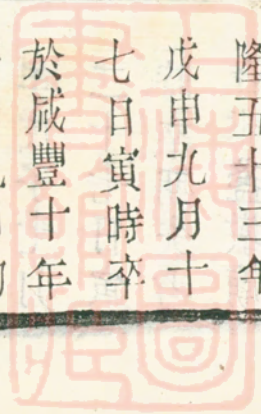 隆五十三年
戊申九月十
七日寅時卒
於咸豐十年